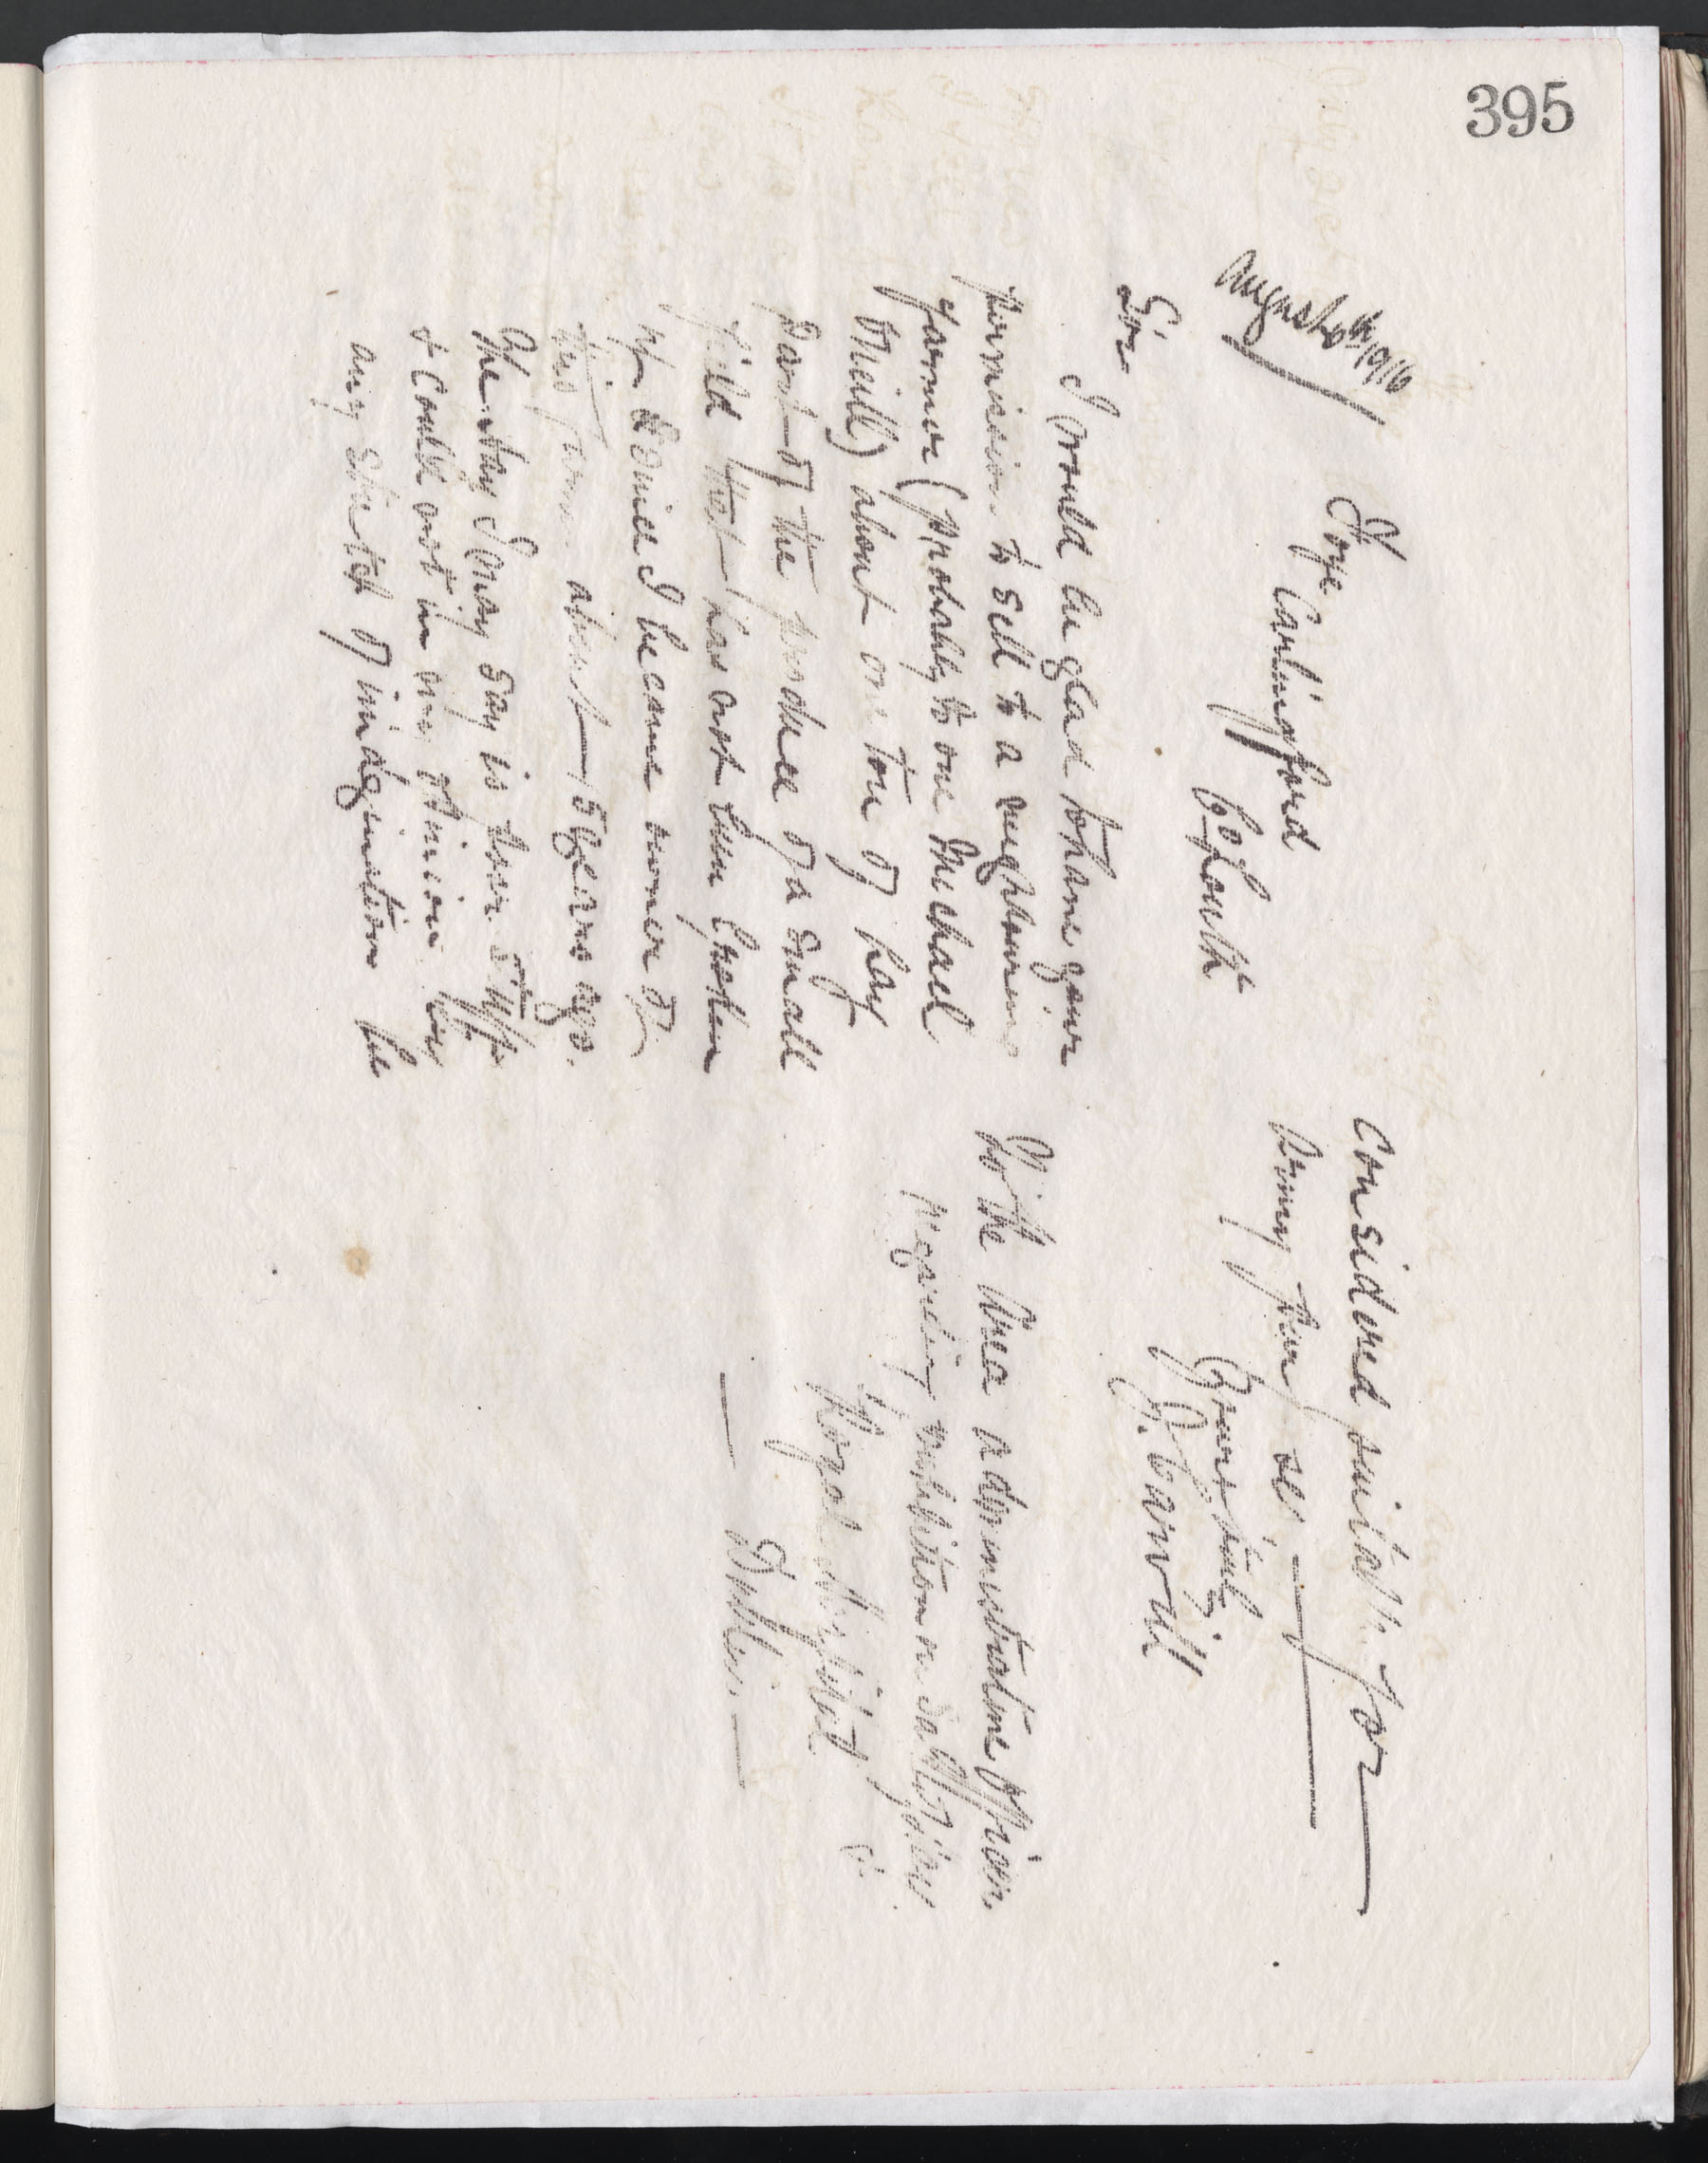 395
August 6th 1916
Foy
Carlingford
Co Louth
Sir
I would be glad to have your
permission to sell to a neighbouring
farmer (probably to one Michael
O'Neill) about one ton of hay
part of the produce of a small
field that has not been broken
up since I became owner of
this farm about 5 years ago.
The hay I may say is poor stuff
& could not in my opinion by
any stretch of imagination be
considered suitable for
Army purposes
Yours truly
P. Carvill
To the Area administrative officer
regarding prohibition on sale of hay
Royal Hospital
Dublin